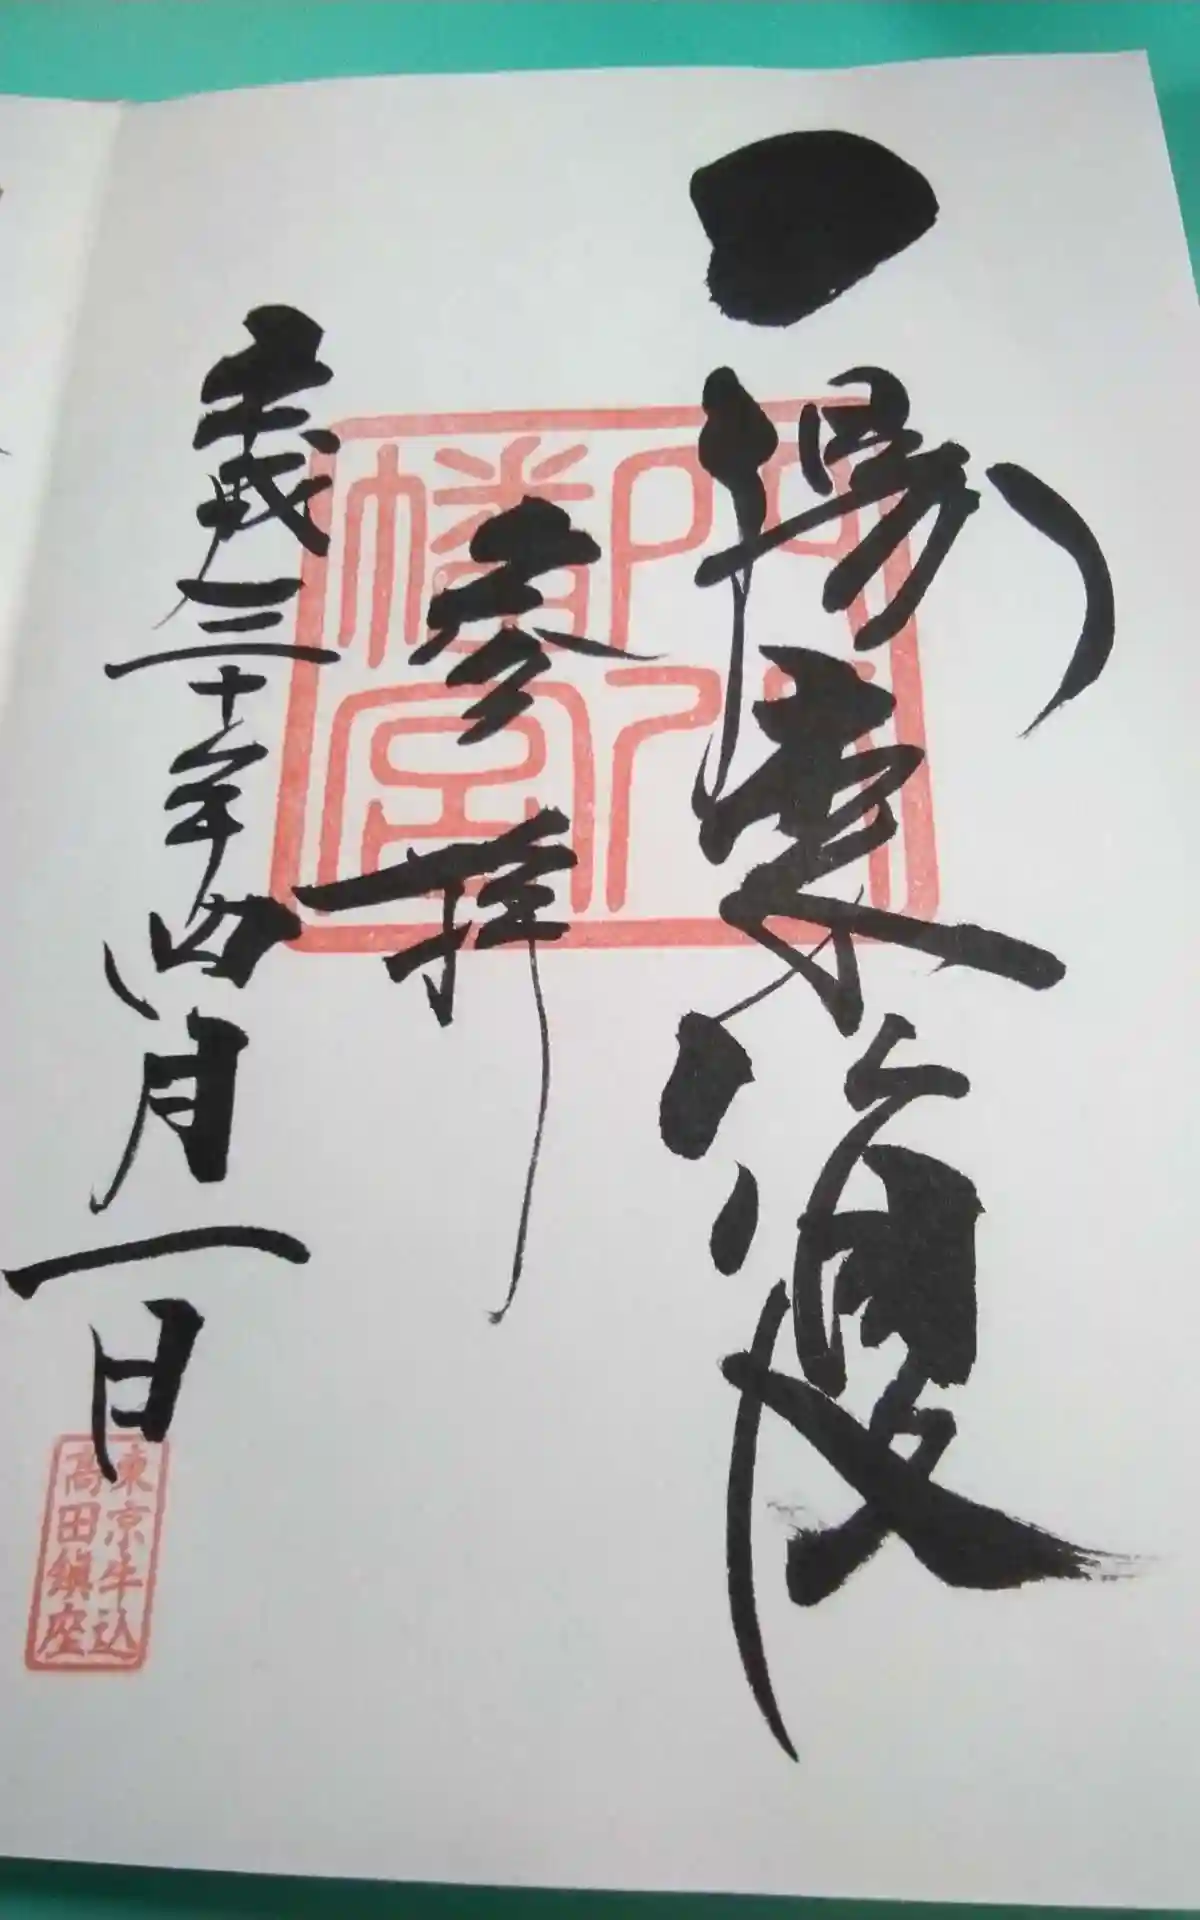 一陽來復
穴八
幡宮
参拝
平成三十年四月一日
東京牛込
高田鎭座